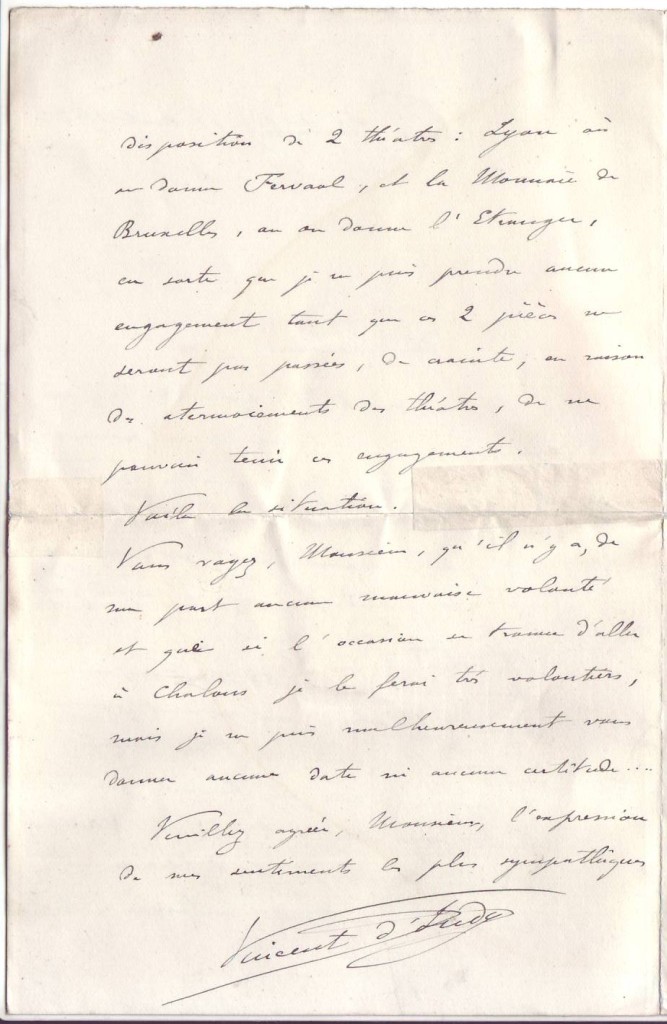 disposition de 2 théatres : Lyon où
on donne Fervaal, et la Monnaie de
Bruxelles, où on donne l'Etranger,
en sorte que je ne puis prendre aucun
engagement tant que ces 2 pièces ne
seront pas passées, de crainte, en raison
des atermoiements des théâtres, de ne
pouvoir tenir ces engagements.
Voilà la situation.
Vous voyez, Monsieur, qu'il n'y a, de
ma part aucune mauvaise volonté
et que si l'occasion se trouve d'aller
à Chalons je le ferai très volontiers,
mais je ne puis malheureusement vous
donner aucune date ni aucune certitude....
Veuillez agréer, Monsieur, l'expression
de mes sentiments les plus sympathiques
Vincent d'Indy